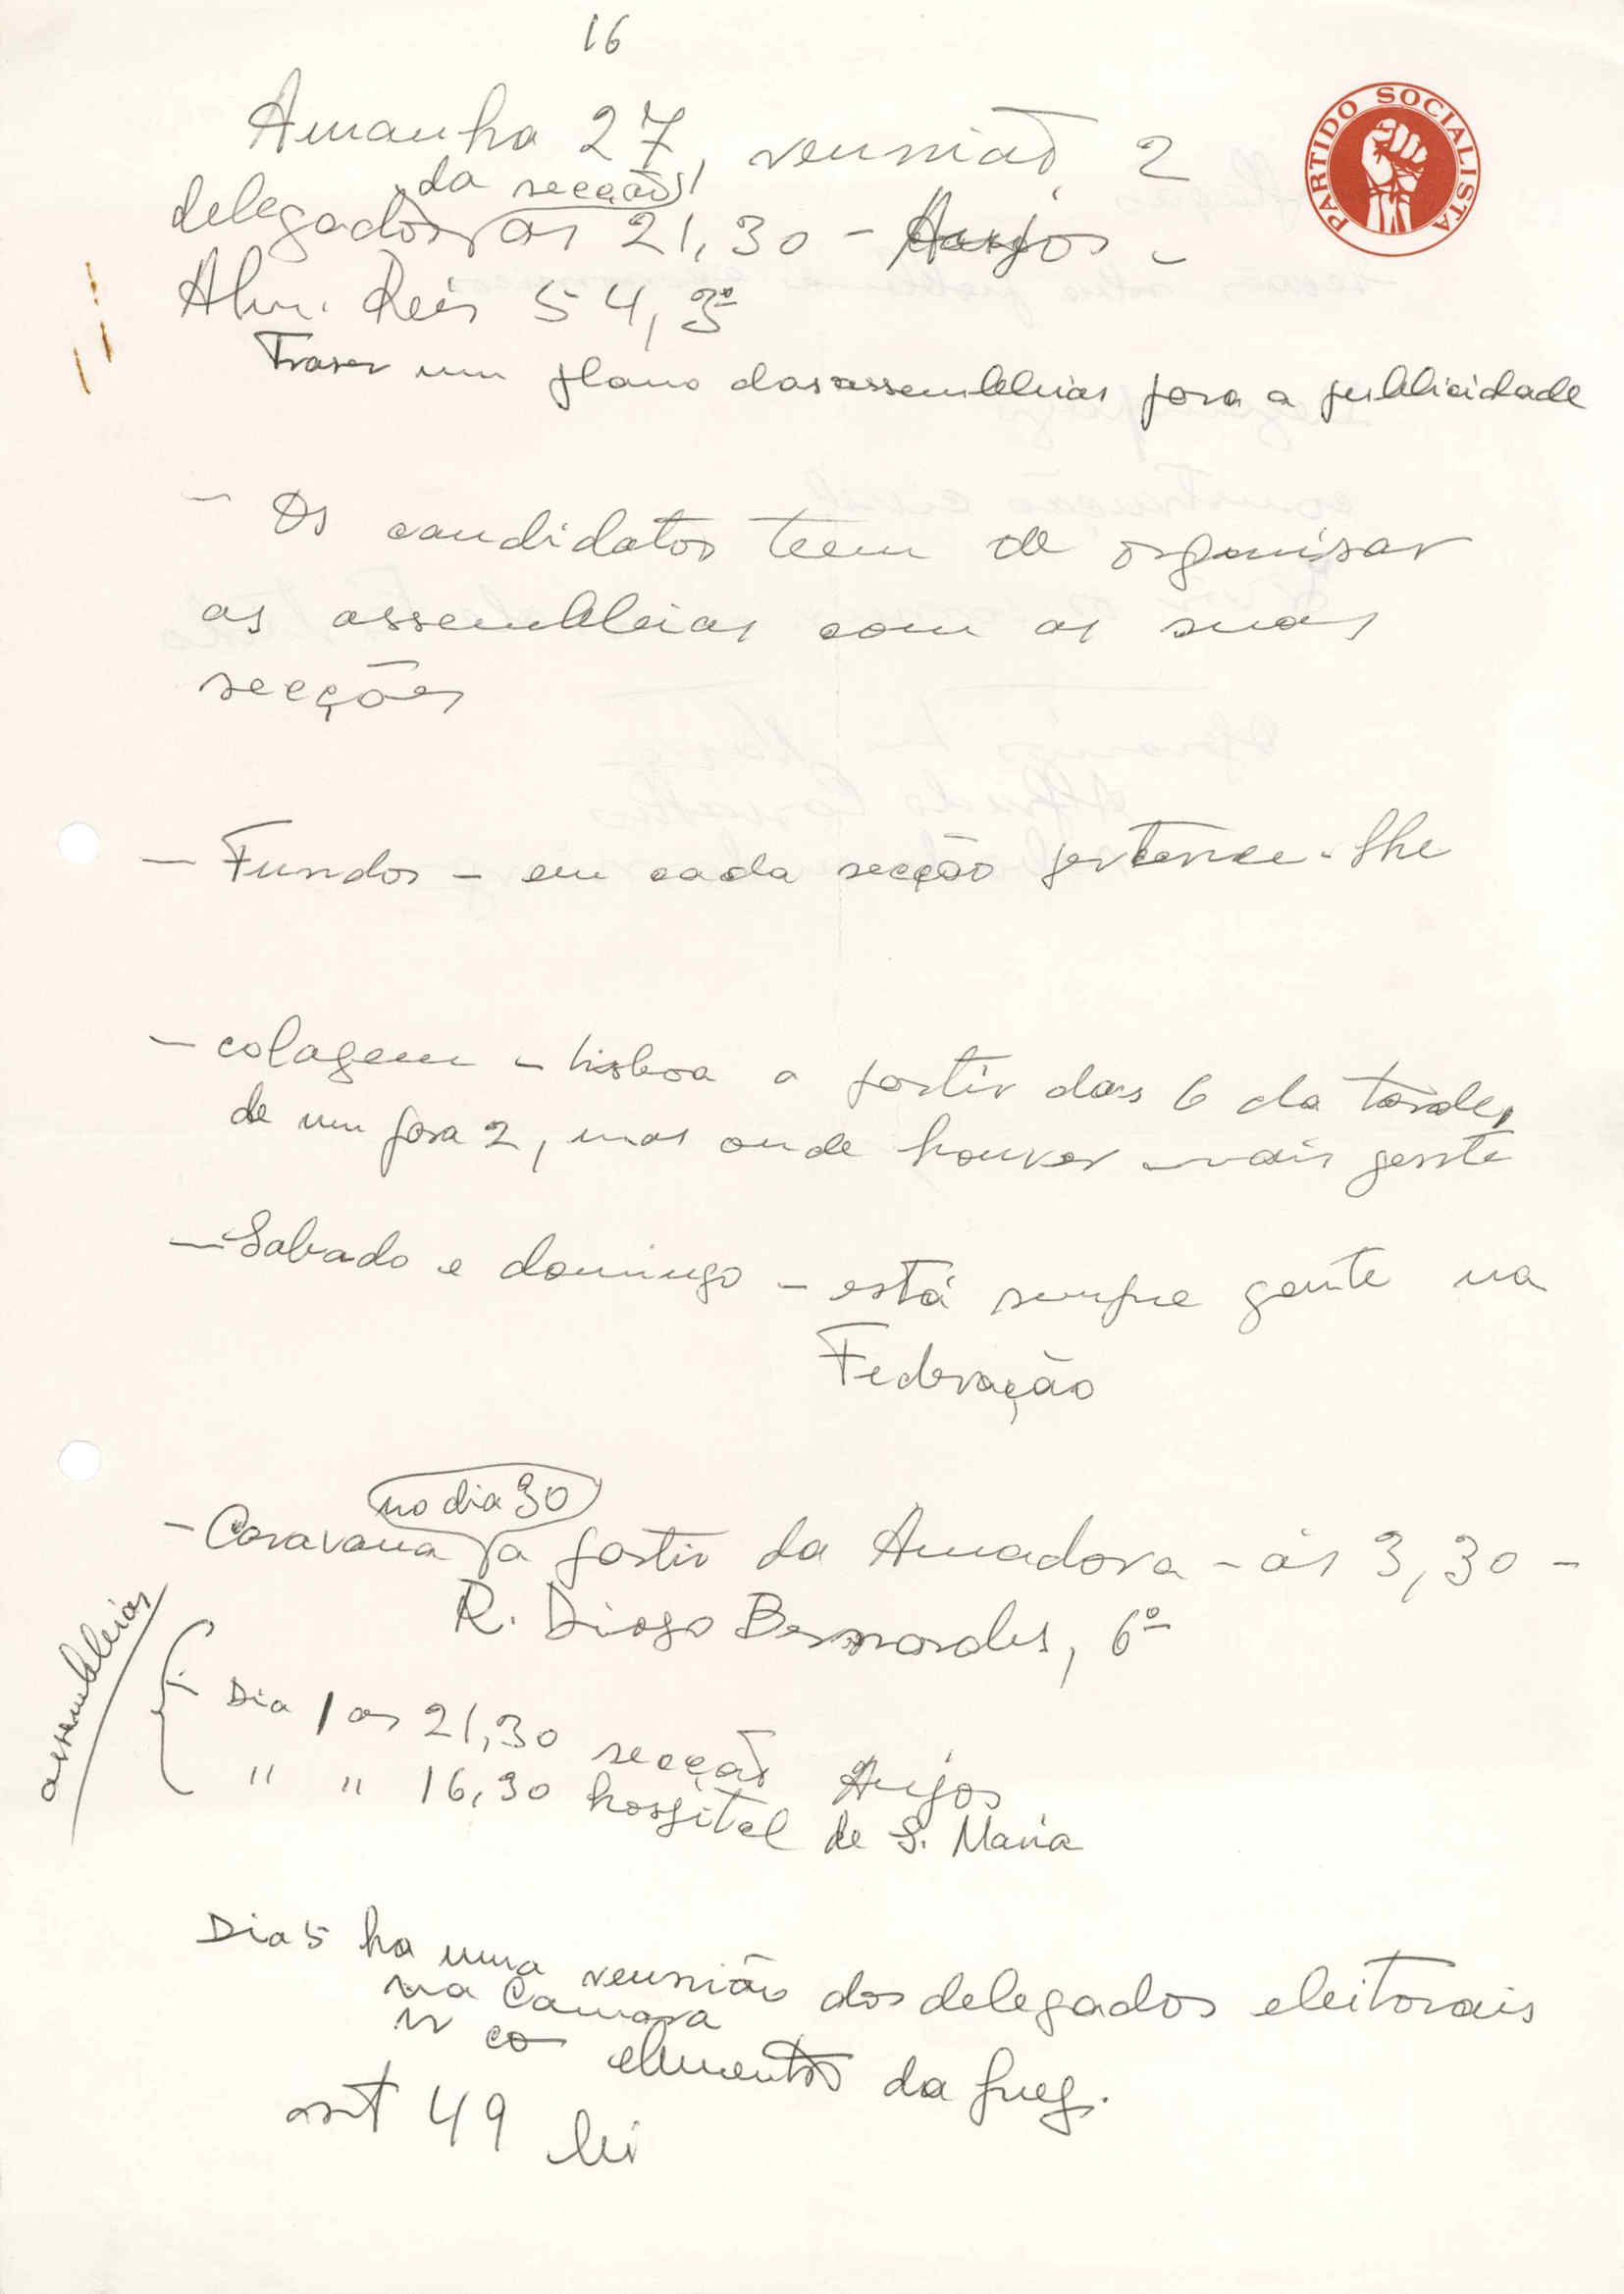 16
PARTIDO SOCIALISTA
Amanha 27, reunião 2
da secção
delegados às 21,30 - Anjos -
Alm. Reis 54, 3º
Traser um plano das assembleias para a publicidade
- Os candidatos teem de organisar
as assembleias com as suas
secções
- Fundos - em cada secção pertence-lhe
- colagem - Lisboa a partir das 6 da tarde,
de um para 2, mas onde houver mais gente
- Sabado e domingo - está sempre gente na
Federação
no dia 30
- Caravana a partir da Amadora - às 3,30 -
R. Diogo Bernardes, 6º
assembleias
Dia 1 as 21,30 secção Anjos
" " 16,30 hospital de S. Maria
Dia 5 ha uma reunião dos delegados eleitorais
na Camara
elementos da freg.
art 49 lei